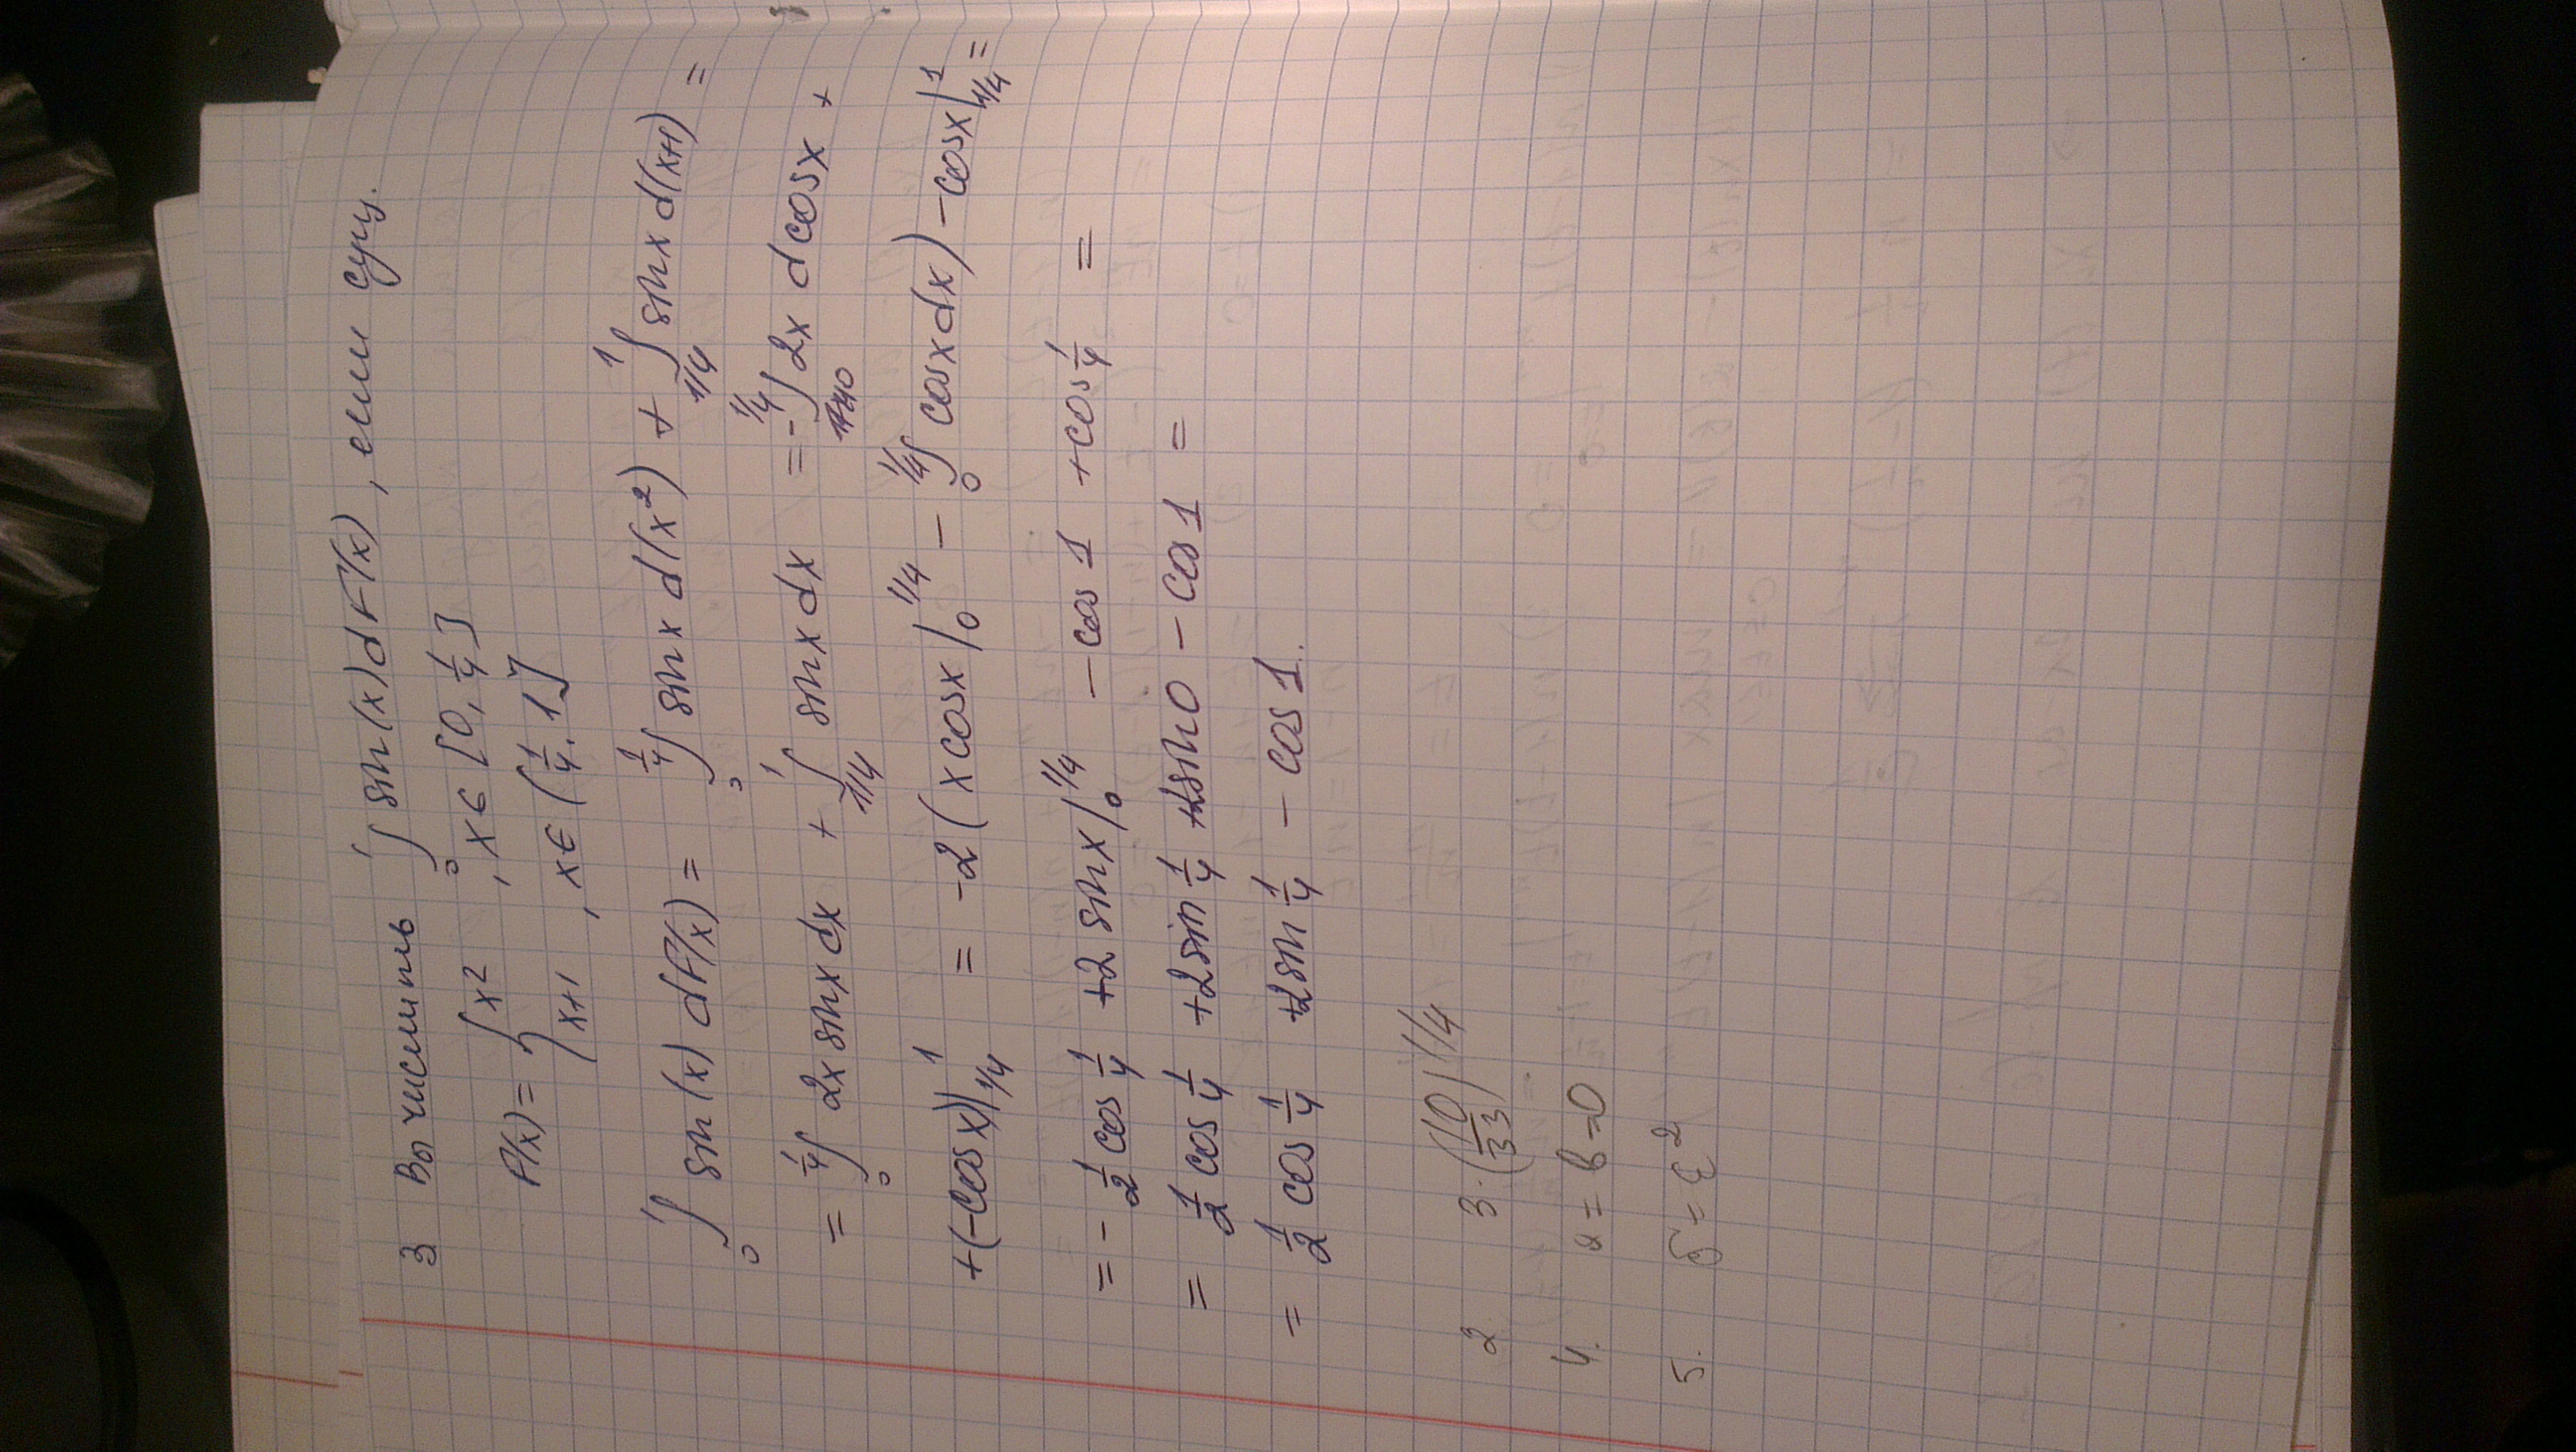 3 Вычислить ∫₀¹ sin(x)dF(x), если сущ.
F(x) = { x² , x ∈ [0, 1/4]
x+1 , x ∈ (1/4. 1]
∫₀¹ sin(x) dF(x) = ∫₀^{1/4} sinx d(x²) + ∫_{1/4}^1 sinx d(x+1) =
= ∫₀^{1/4} 2x sinx dx + ∫_{1/4}^1 sinx dx = - ∫₀^{1/4} 2x dcosx +
+(-cosx)|_{1/4}^1 = -2(xcosx|₀^{1/4} - ∫₀^{1/4} cosxdx) - cosx|_{1/4}^1 =
= - 1/2 cos 1/4 +2 sinx|₀^{1/4} - cos 1 + cos 1/4 =
= 1/2 cos 1/4 + 2sin 1/4 + 2sin0 - cos 1 =
= 1/2 cos 1/4 + 2sin 1/4 - cos 1.
2 3·(10/33)^{1/4}
4. a = b = 0
5. δ = ε²